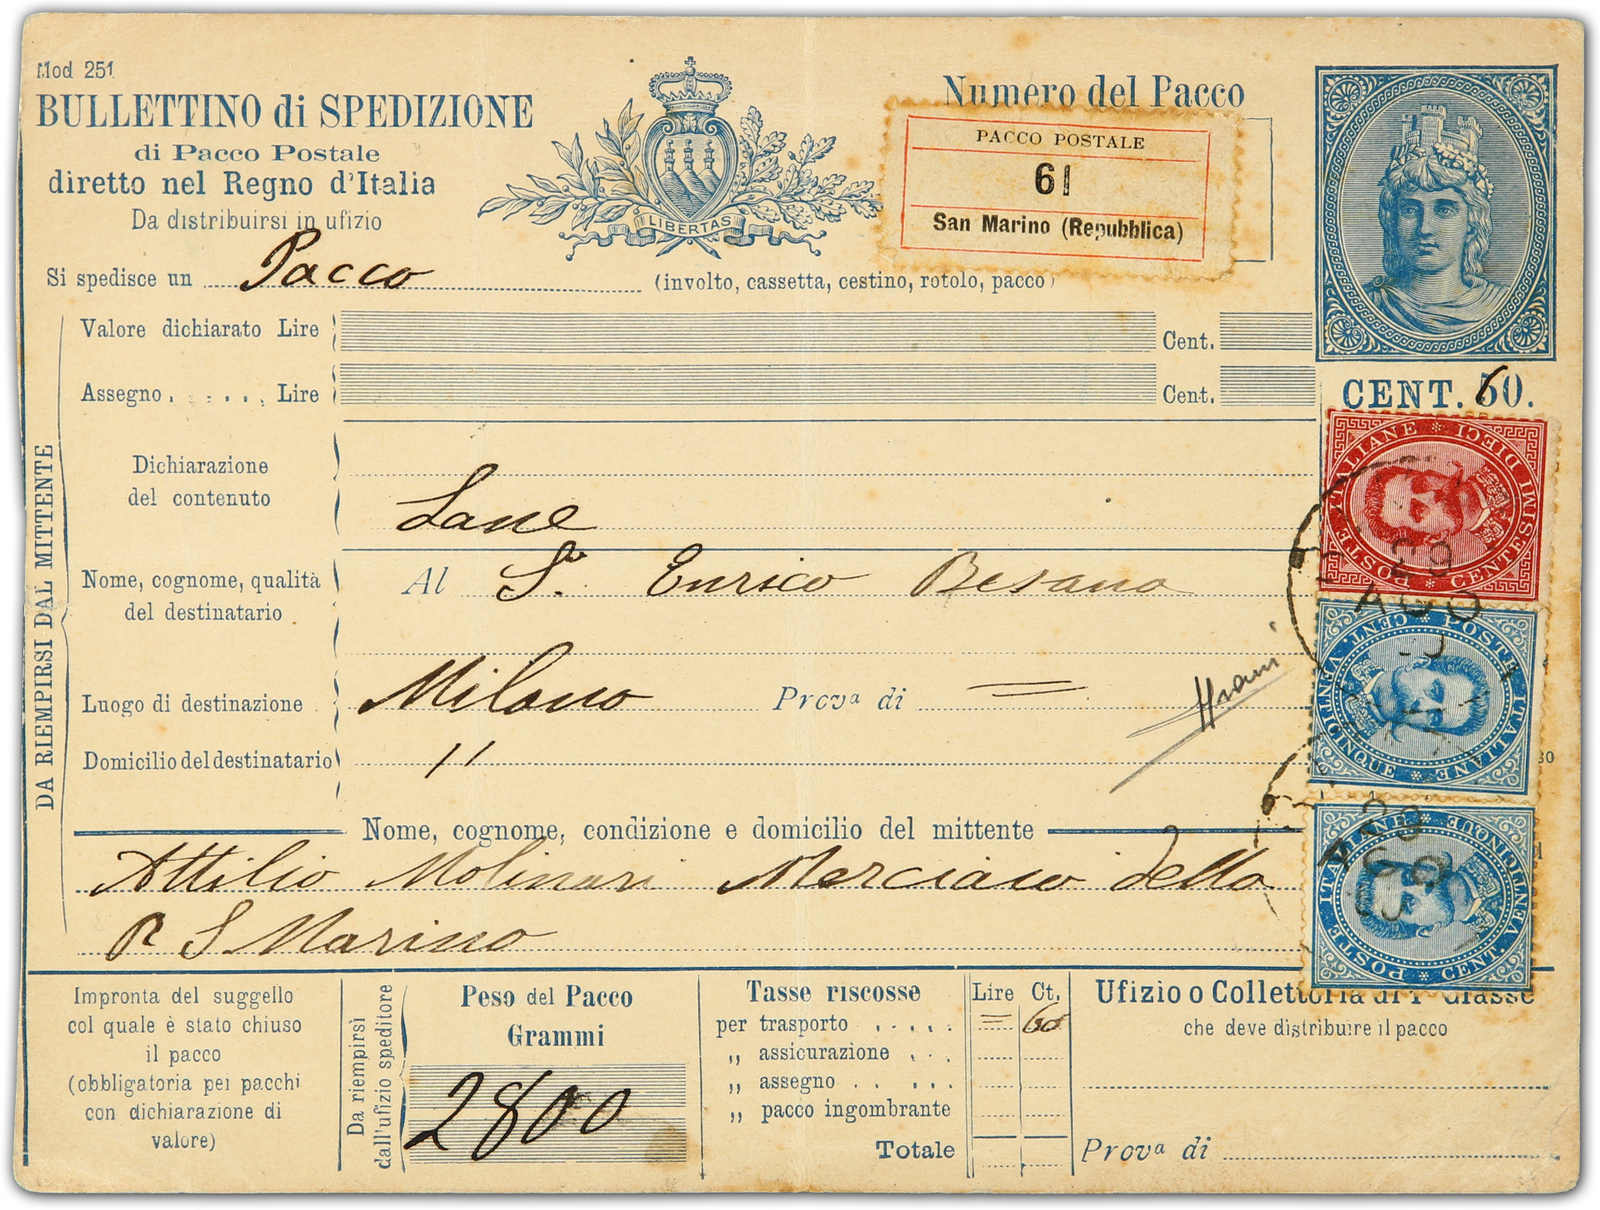 Mod 251
BULLETTINO di SPEDIZIONE
di Pacco Postale
diretto nel Regno d'Italia
Da distribuirsi in ufizio
LIBERTAS
Numero del Pacco
PACCO POSTALE
61
San Marino (Repubblica)
Si spedisce un Pacco (involto, cassetta, cestino, rotolo, pacco)
Valore dichiarato Lire Cent.
Assegno Lire Cent.
CENT. 60.
DA RIEMPIRSI DAL MITTENTE
Dichiarazione
del contenuto
Lane
Nome, cognome, qualità
del destinatario
Al S. Enrico Besana
Luogo di destinazione Milano Prova di =
Domicilio del destinatario "
Nome, cognome, condizione e domicilio del mittente
Attilio Molinari Merciaio della
R S Marino
POSTE ITALIANE * CENTESIMI DIECI *
29
AGO
POSTE ITALIANE * CENT. VENTICINQUE *
POSTE ITALIANE * CENT. VENTICINQUE *
AGO
Impronta del suggello
col quale è stato chiuso
il pacco
(obbligatoria pei pacchi
con dichiarazione di
valore)
Da riempirsi
dall'ufizio speditore
Peso del Pacco
Grammi
2800
Tasse riscosse Lire Ct.
per trasporto = 60
„ assicurazione
„ assegno
„ pacco ingombrante
Totale
Ufizio o Collettoria di 1ª Classe
che deve distribuire il pacco
Prova di